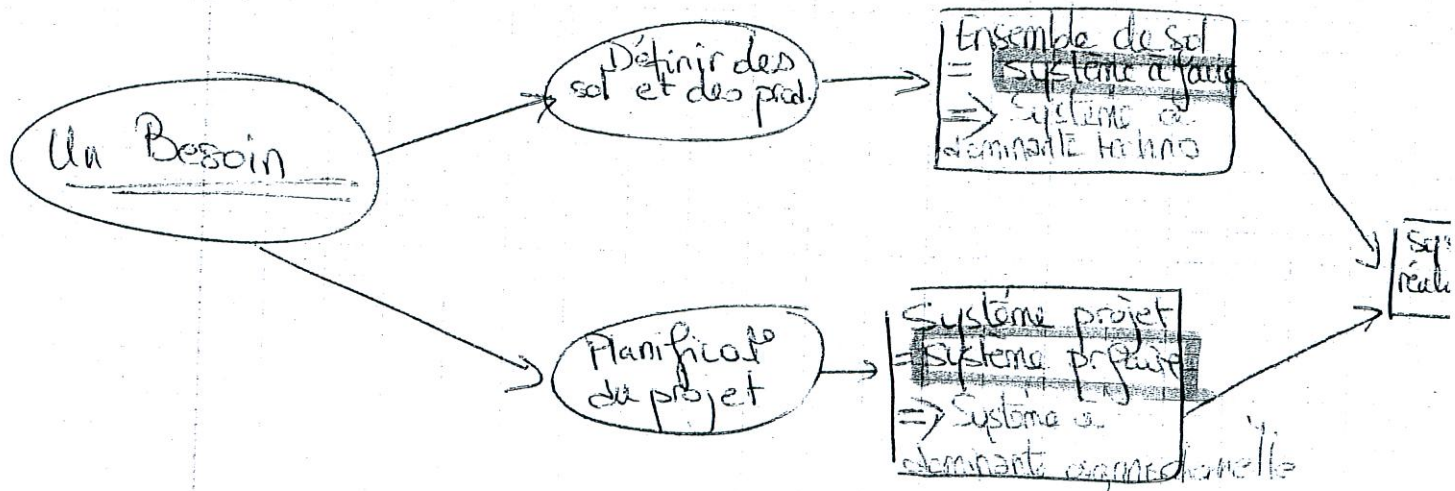 Un Besoin
Définir des
sol et des prod.
Ensemble de sol
= Système à faire
=> Système à
dominante techno
Planificat°
du projet
Système projet
= Système pr faire
=> Système à
dominante organisationnelle